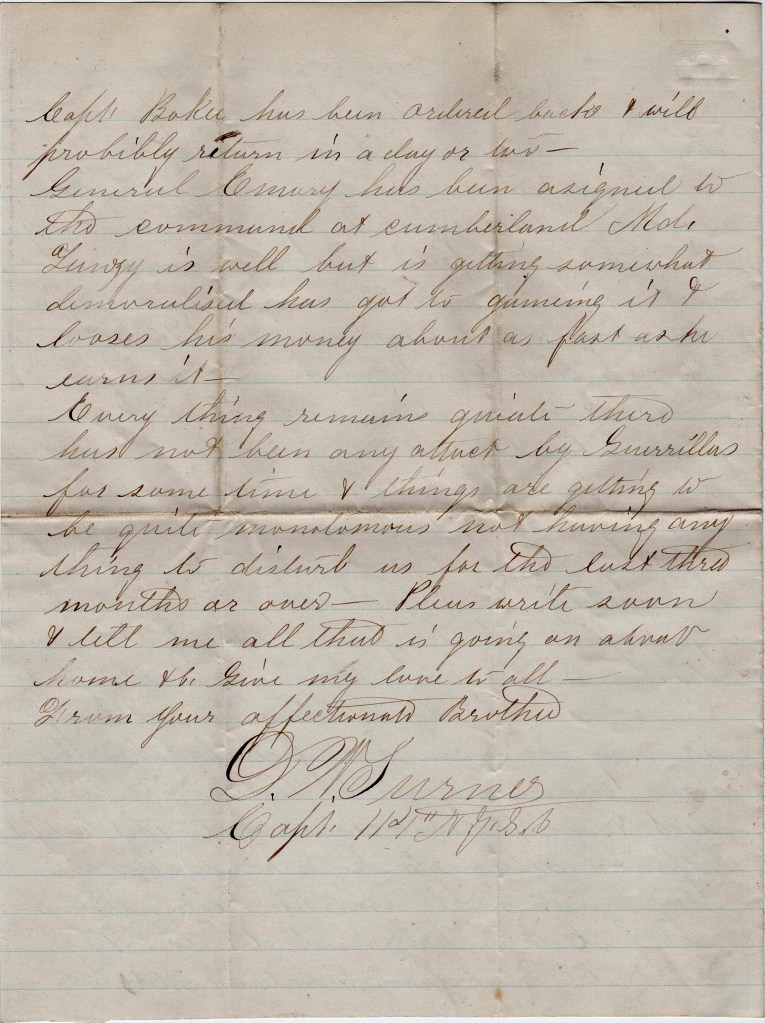 Capt. Boker has been ordered back & will
probibly return in a day or two —
General Emory has been asigned to
the command at cumberland Md.
is well but is getting somewhat
demoralised has got to gameing it &
looses his money about as fast as he
earns it —
Every thing remains quiate there
has not been any attact by Guerrillas
for some time & things are getting to
be quite monotomous not having any
thing to disturb us for the last three
months or over — Pleas write soon
& tell me all that is going on about
home &c. Give my love to all —
From Your affectionate Brother
D. W. Turner
Capt.